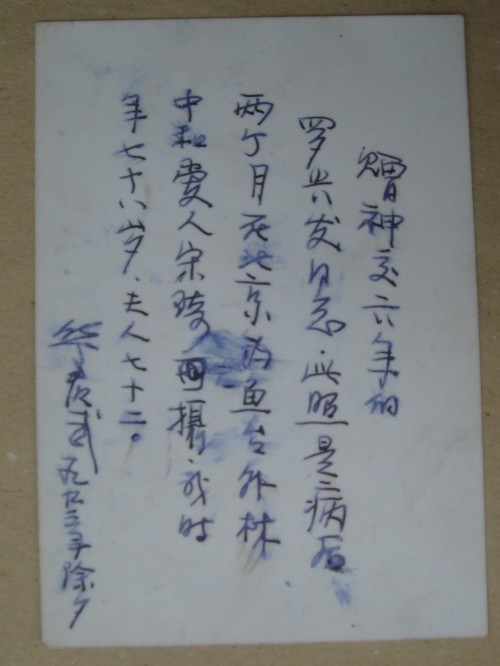 赠神交六年的
罗兴发同志.此照是病后
两个月在北京钓鱼台外林
中和爱人宋琦同摄.我时
年七十八岁.夫人七十二。
九三年除夕